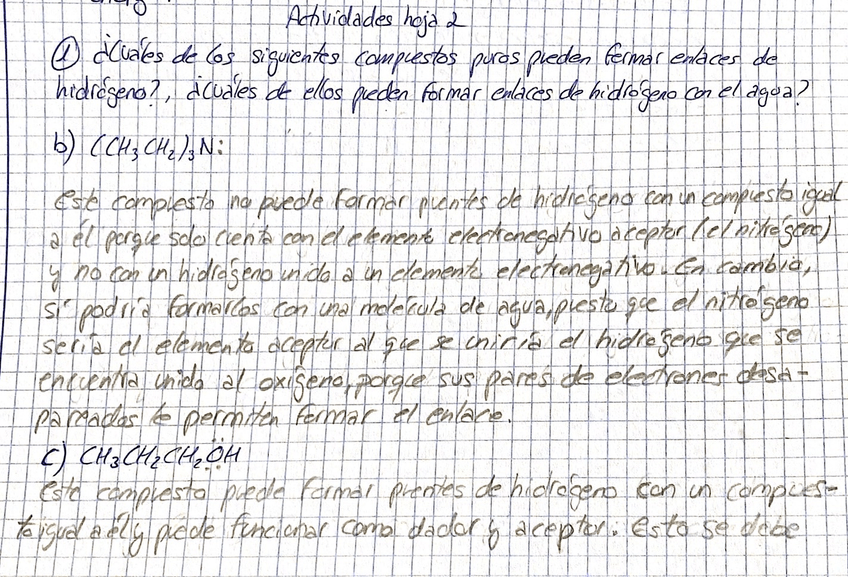 Actividades hoja 2
① ¿Cuáles de los siguientes compuestos puros pueden formar enlaces de
hidrógeno?, ¿cuáles de ellos pueden formar enlaces de hidrógeno con el agua?
b) (CH3CH2)3N:
Este compuesto no puede formar puentes de hidrógeno con un compuesto igual
a él porque solo cuenta con el elemento electronegativo aceptor (el nitrógeno)
y no con un hidrógeno unido a un elemento electronegativo. En cambio,
sí podría formarlos con una molécula de agua, puesto que el nitrógeno
sería el elemento aceptor al que se uniría el hidrógeno que se
encuentra unido al oxígeno, porque sus pares de electrones desa-
pareados le permiten formar el enlace.
c) CH3CH2CH2ÖH
Este compuesto puede formar puentes de hidrógeno con un compues-
to igual a él y puede funcionar como dador y aceptor. Esto se debe